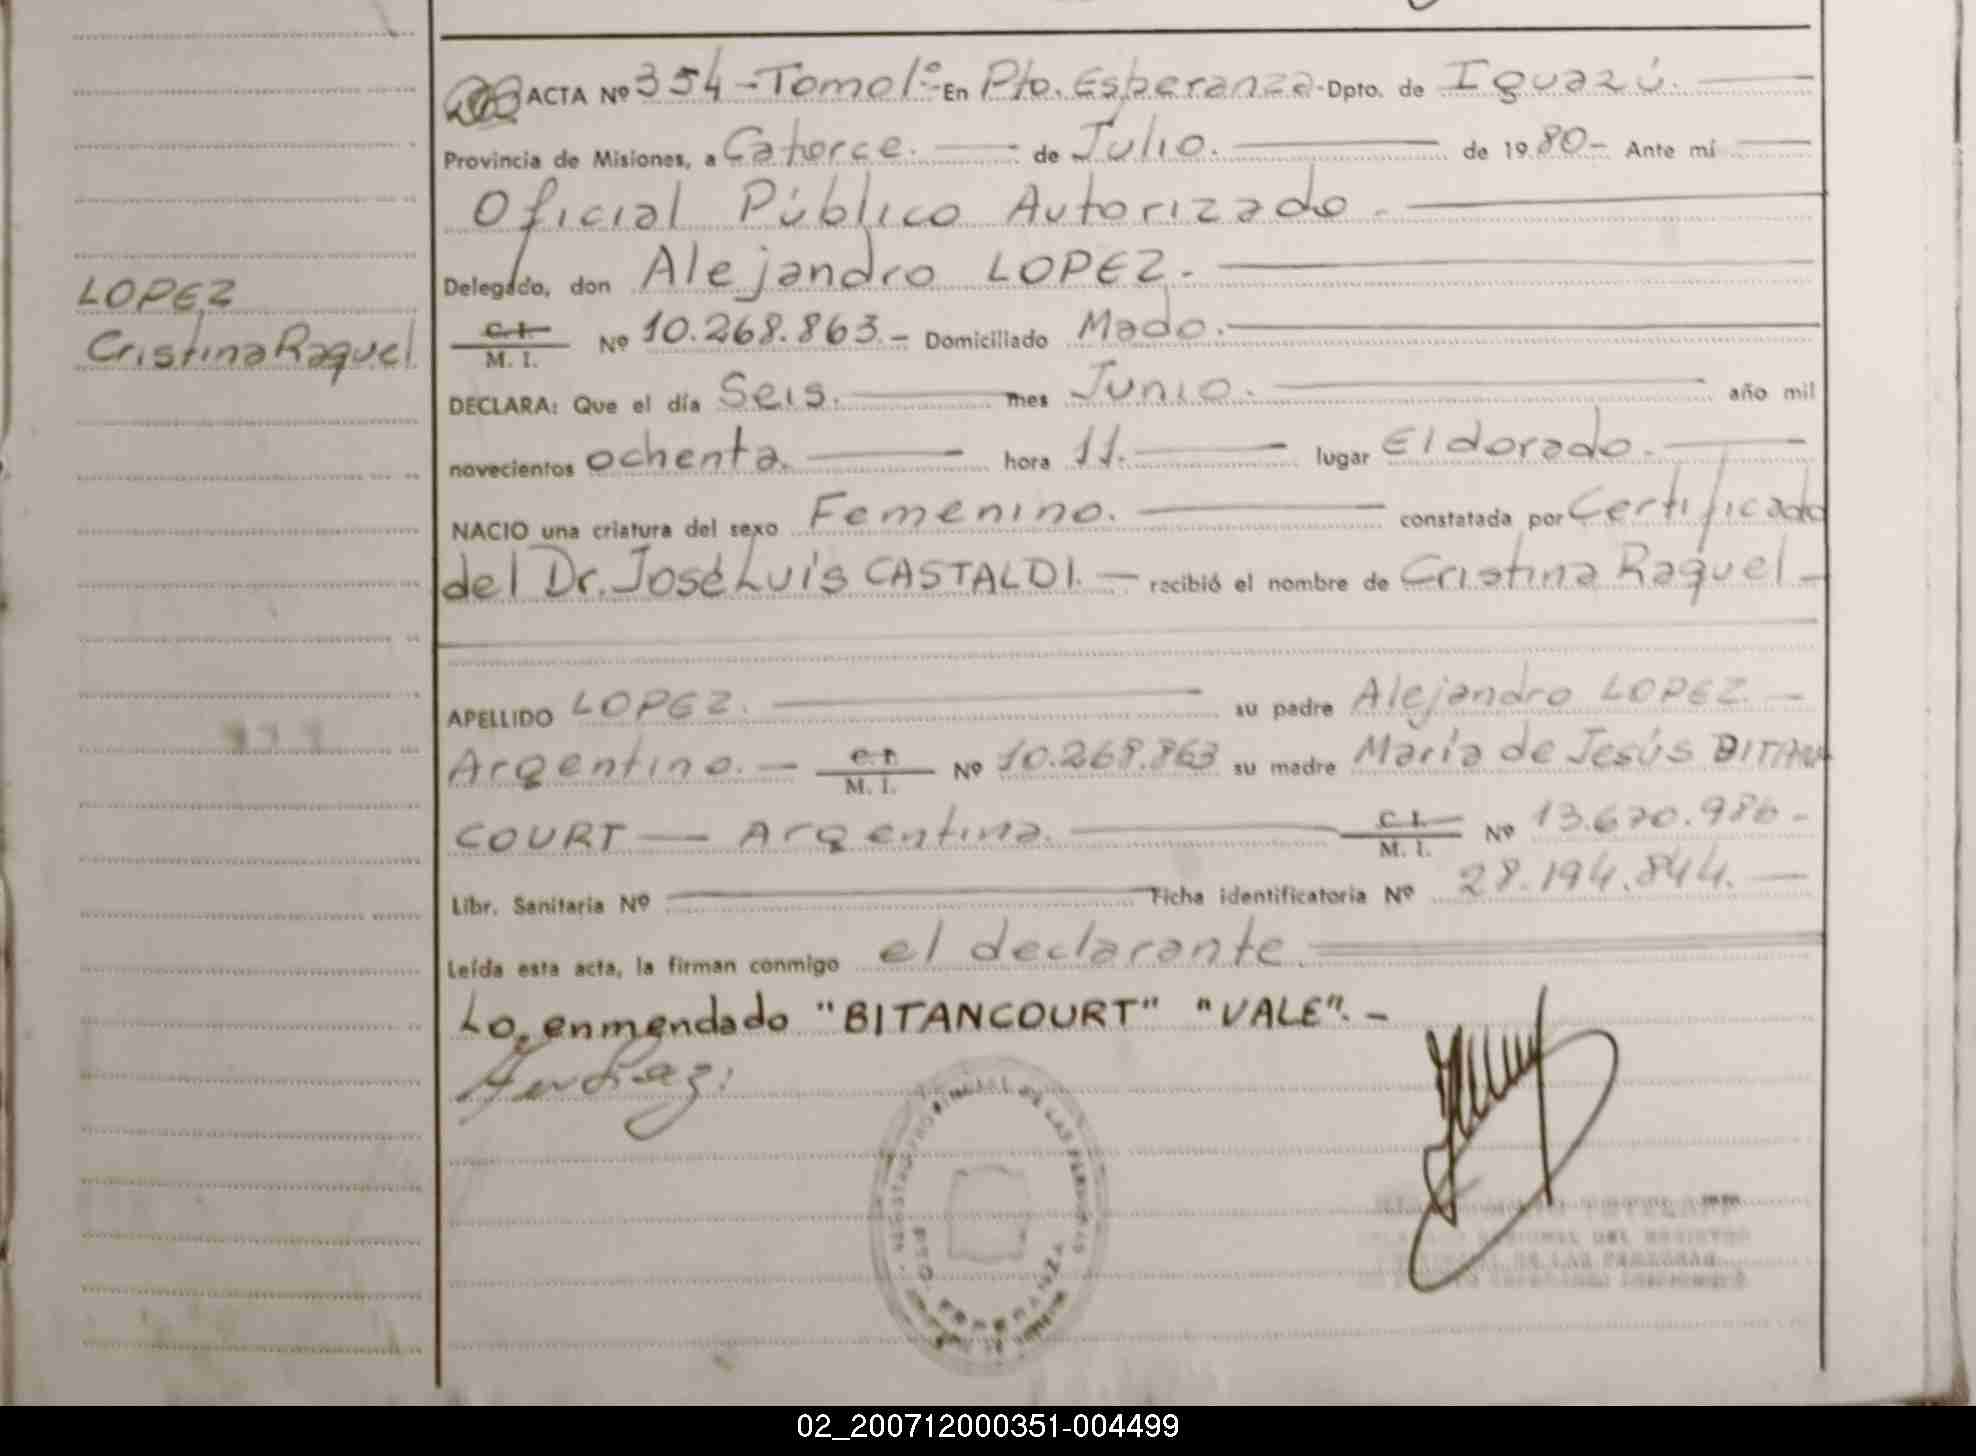 ACTA Nº 354-Tomo I°- En Pto. Esperanza - Dpto. de Iguazú.
Provincia de Misiones, a Catorce. de Julio. de 1980- Ante mí
Oficial Público Autorizado -
Delegado, don Alejandro LOPEZ.-
LOPEZ
Cristina Raquel
C. I. / M. I. Nº 10.268.863.- Domiciliado Mado.
DECLARA: Que el día Seis. mes Junio. año mil
novecientos ochenta. hora 11. lugar Eldorado.
NACIO una criatura del sexo Femenino. constatada por Certificado
del Dr. José Luis CASTALDI. — recibió el nombre de Cristina Raquel -
APELLIDO LOPEZ. su padre Alejandro LOPEZ. -
Argentino. — C. I. / M. I. Nº 10.268.863 su madre María de Jesús BITAN
COURT — Argentina. C. I. / M. I. Nº 13.670.986-
Libr. Sanitaria Nº Ficha identificatoria Nº 28.194.844. —
Leída esta acta, la firman conmigo el declarante.
Lo enmendado "BITANCOURT" "VALE". -
DE LAS PERSONAS
PTO. ESPERANZA
02_200712000351-004499